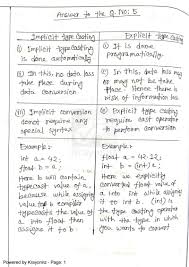 Answer to the Q. No: 5
Implicit type casting
Explicit type casting
(i) Implicit typecasting is done automatically.
(i) It is done programatically.
(ii) In this, no data loss take place during data conversion
(ii) In this, data loss may or may not be take place. Hence there is risk of information loss
(iii) Implicit conversion donot require any special syntax
Explicit type casting require cast operator to perform conversion
Example:
int a = 42;
float b = a;
here b will contain typecast value of a, because while assigning value to compiler typecasts the value of a into float then assigning to b.
Example:
float a = 42.22;
int b = (int)a;
here we explicitly converted float value of a into int while assigning it to int b. (int) is the type casting operator with the type in which you wants to convert
Powered by Kisyonniz - Page: 1